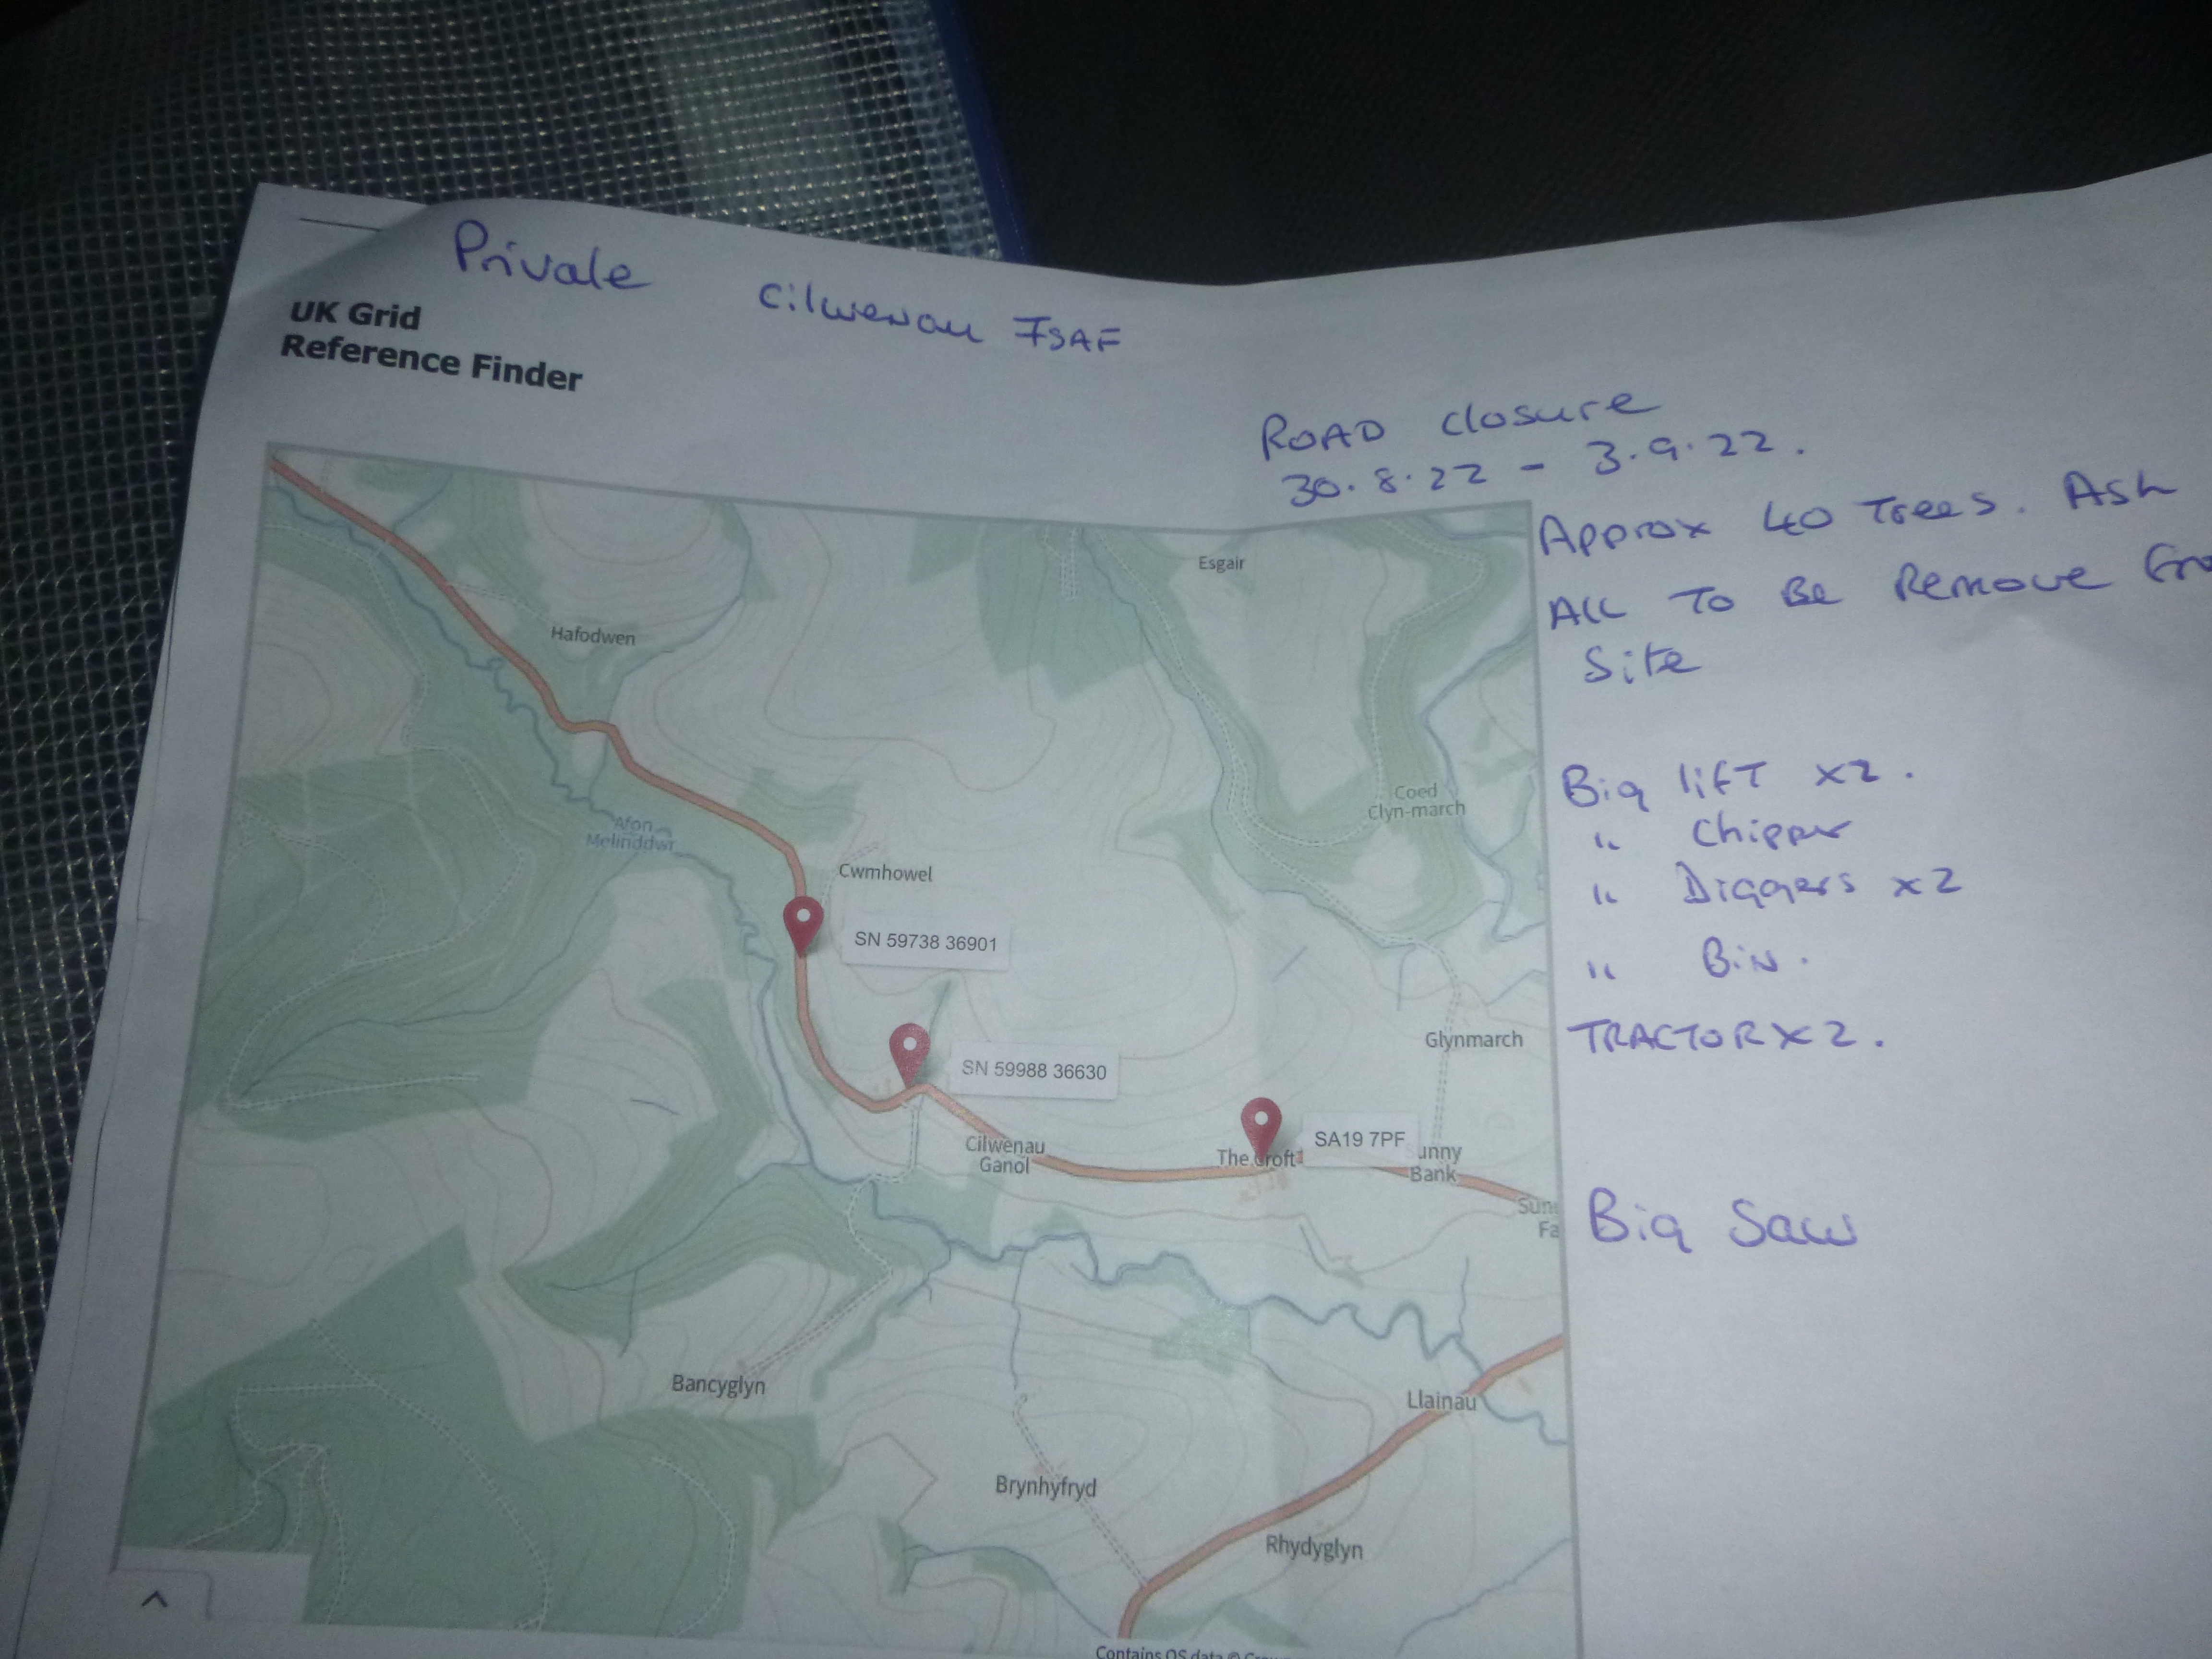 Private Cilwenau ISAF
UK Grid
Reference Finder
ROAD closure
30.8.22 - 3.9.22.
Approx 40 Trees. Ash
All To Be Remove
Site
Big lift x2.
" Chipper
" Diggers x2
" Bin.
TRACTOR X2.
Big Saw
Esgair
Hafodwen
Coed
Clyn-march
Afon
Melinddwr
Cwmhowel
SN 59738 36901
Glynmarch
SN 59988 36630
Cilwenau
Ganol
The Croft
SA19 7PF
unny
Bank
Bancyglyn
Llainau
Brynhyfryd
Rhydyglyn
Contains OS data ©